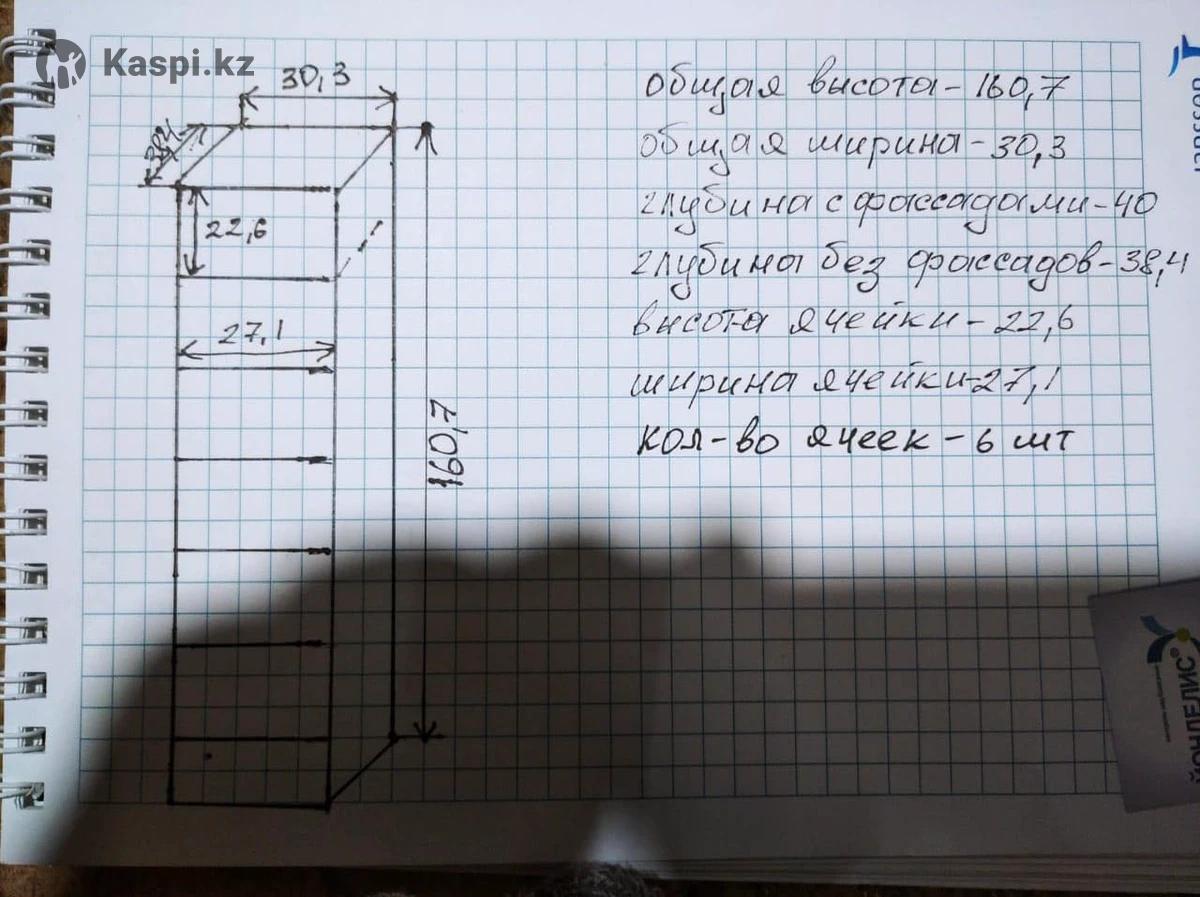 Kaspi.kz
30,3
38,4
22,6
27,1
160,7
общая высота - 160,7
общая ширина - 30,3
глубина с фассадами - 40
глубина без фассадов - 38,4
высота ячейки - 22,6
ширина ячейки - 27,1
кол-во ячеек - 6 шт